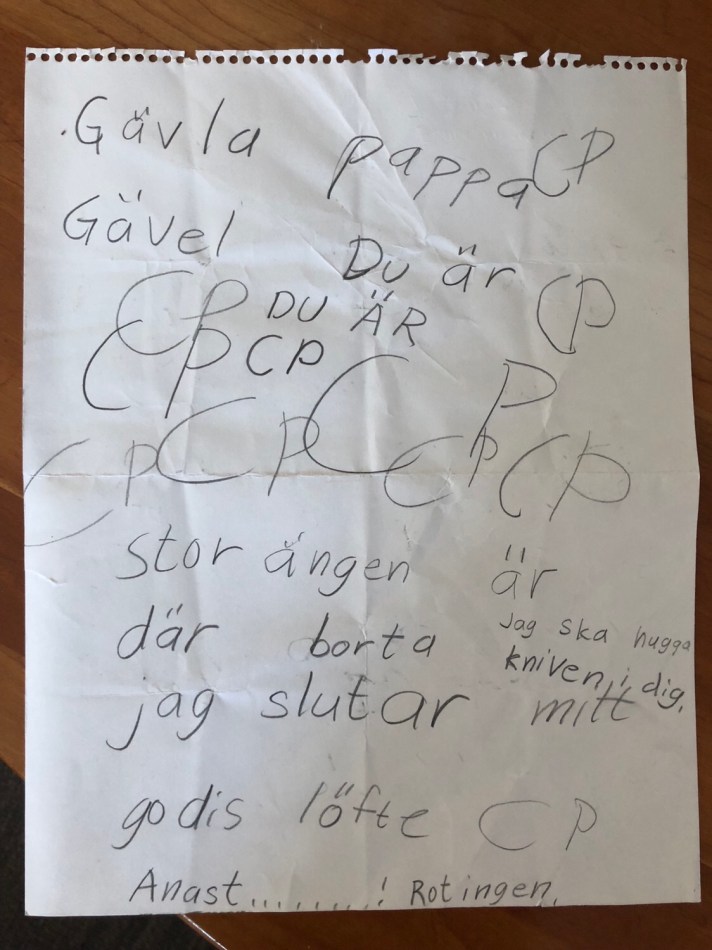 .Gävla pappa CP
Gävel Du är CP
CP DU ÄR
CP CP
CP CP CP CP CP
stor ängen är
där borta Jag ska hugga
kniven i dig.
jag slutar mitt
godis löfte CP
Anast.........! Rotingen.